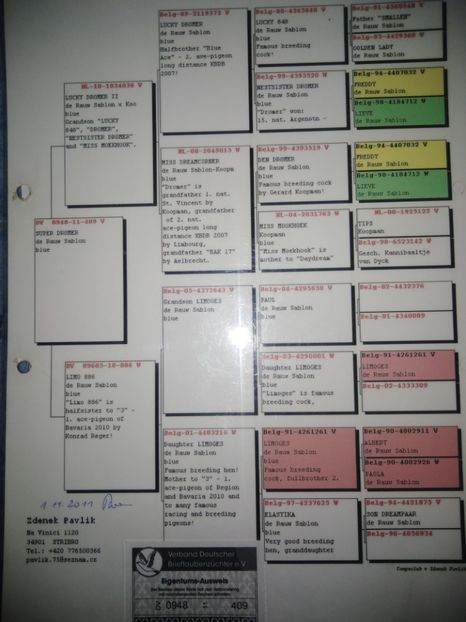 DV 0948-11-409 V
SUPER DROMER
de Rauw Sablon
blue
NL-10-1034036 V
LUCKY DROMER II
de Rauw Sablon x Koo
blue
Grandson "LUCKY
848", "DROMER",
"NESTSISTER DROMER"
and "MISS MOEKHOEK".
DV 09685-10-886 W
LIMO 886
de Rauw Sablon
blue
"Limo 886" is
halfsister to "3" -
1. ace-pigeon of
Bavaria 2010 by
Konrad Reger!
LUCKY DROMER
de Rauw Sablon
blue
Halfbrother "Blue
Ace" - 2. ave-pigeon
long distance KBDB
2007!
NL-08-2049013 W
MISS DREAMCORNER
de Rauw Sablon-Koopm
blue
"Dromer" is
grandfather 1. nat.
St. Vincent by
Koopman, grandfather
of 2. nat.
ace-pigeon long
distance KBDB 2007
by Limbourg,
grandfather "RAK 17"
by Aelbrecht.
Belg-05-4372643 V
Grandson LIMOGES
de Rauw Sablon
blue
Daughter LIMOGES
de Rauw Sablon
blue
Famous breeding hen!
Mother to "3" - 1.
ace-pigeon of Region
and Bavaria 2010 and
to many famous
racing and breeding
pigeons!
LUCKY 848
de Rauw Sablon
blue
Famous breeding
cock!
Belg-99-4393520 W
NESTSISTER DROMER
de Rauw Sablon
"Dromer" won:
15. nat. Argenotn -
Belg-99-4393519 V
DEN DROMER
de Rauw Sablon
blue
Famous breeding cock
by Gerard Koopman!
NL-04-2031763 W
MISS MOEKHOEK
Koopmann
blue
"Miss Moekhoek" is
mother to "Daydream"
Belg-04-4295638 V
PAUL
de Rauw Sablon
blue
Belg-03-4290001 W
Daughter LIMOGES
de Rauw Sablon
blue
"Limoges" is famous
breeding cock,
Belg-91-4261261 V
LIMOGES
de Rauw Sablon
blue
Famous breeding
cock, fullbrother 2.
Belg-97-4237625 W
ELASTIKA
de Rauw Sablon
blue
Very good breeding
hen, granddaughter
Father "SMALLEN"
de Rauw Sablon
GOLDEN LADY
de Rauw Sablon
Belg-94-4407032 V
FREDDY
de Rauw Sablon
Belg-98-4184712 W
LIEVE
de Rauw Sablon
Belg-94-4407032 V
FREDDY
de Rauw Sablon
Belg-98-4184712 W
LIEVE
de Rauw Sablon
TIPS
Koopmann
Belg-98-6523142 W
Gesch. Kannibaaltje
van Dyck
Belg-02-4432376
Belg-01-4340089
Belg-91-4261261 V
LIMOGES
de Rauw Sablon
Belg-02-4333309
Belg-90-4002911 V
ALBERT
de Rauw Sablon
Belg-90-4002926 W
PAOLA
de Rauw Sablon
Belg-94-4491873 V
SON DREAMPAAR
de Rauw Sablon
1.11.2011
Zdenek Pavlik
Na Vinici 1120
34901 STRIBRO
Tel.: +420 776500366
pavlik.75@seznam.cz
Verband Deutscher
Brieftaubenzüchter e.V.
Eigentums-Ausweis
0948 - 409